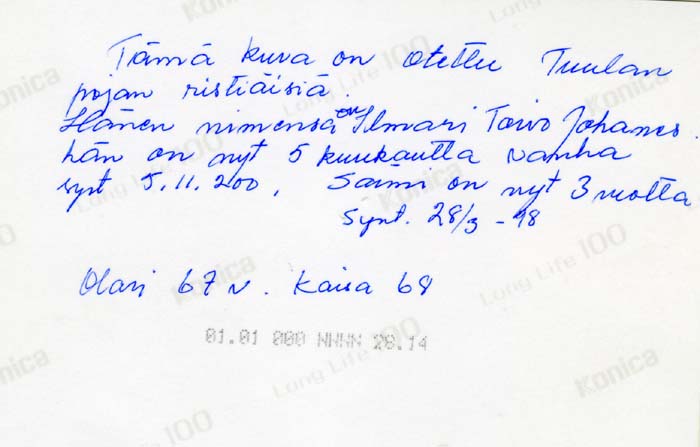 Tämä kuva on otettu Tuulan
pojan ristiäisiä.
Hänen nimensä on Ilmari Toivo Johanes.
hän on nyt 5 kuukautta vanha
synt 5.11.200, Saimi on nyt 3 vuotta
synt. 28/3 -98
Olavi 67 v. Kaisa 68
01.01 000 NNNN 28.14
Konica
Long Life 100